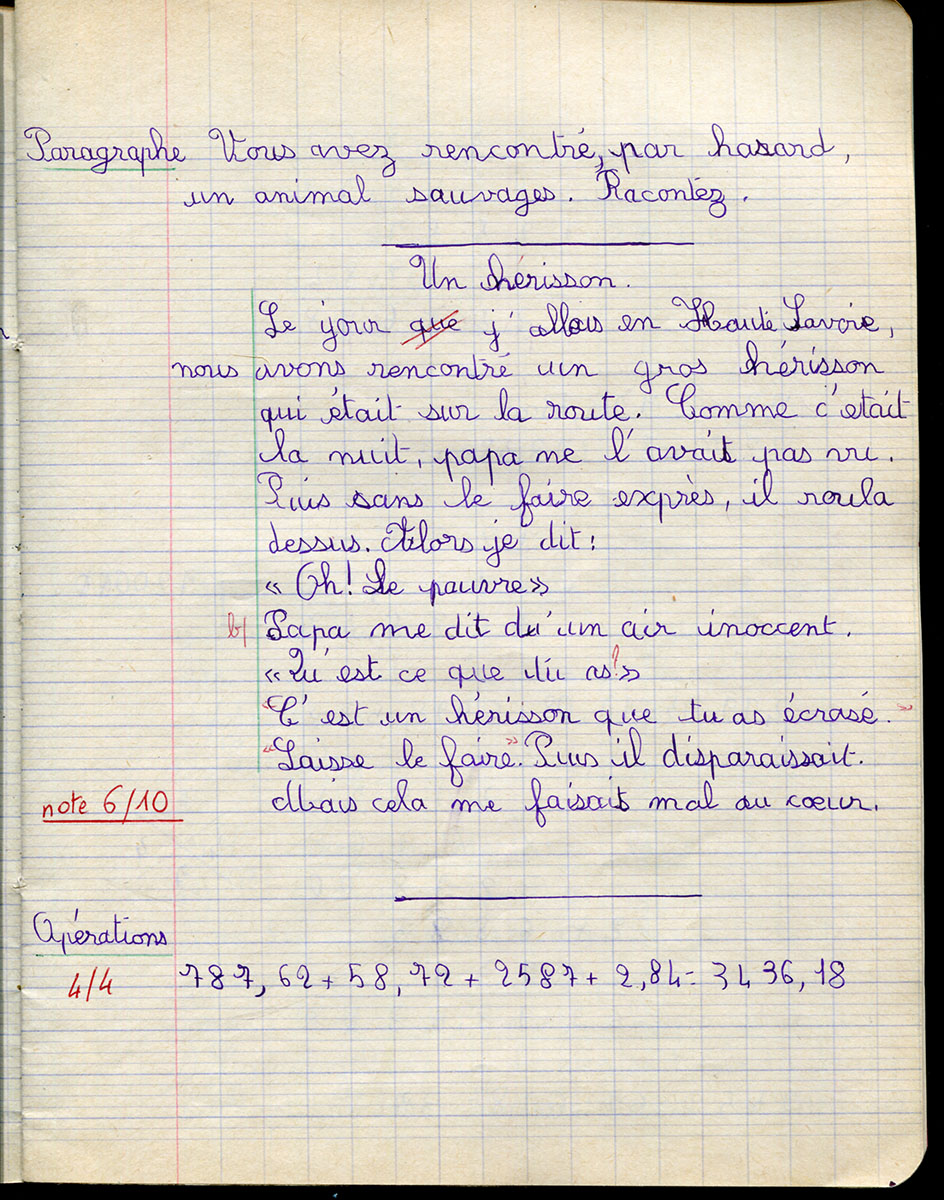 Paragraphe Vous avez rencontré, par hasard,
un animal sauvages. Racontez.
Un hérisson.
Le jour que j'allais en Haute Savoie,
nous avons rencontré un gros hérisson
qui était sur la route. Comme c'était
la nuit, papa ne l'avait pas vu.
Puis sans le faire exprès, il roula
dessus. Alors je dit :
« Oh! Le pauvre »
b/ Papa me dit du'un air inoccent.
« Qu'est ce que tu as? »
"C'est un hérisson que tu as écrasé."
"Laisse le faire". Puis il disparaissait.
note 6/10 Mais cela me faisait mal au coeur.
Opérations
4/4 787,62 + 58,72 + 2587 + 2,84 = 3436,18